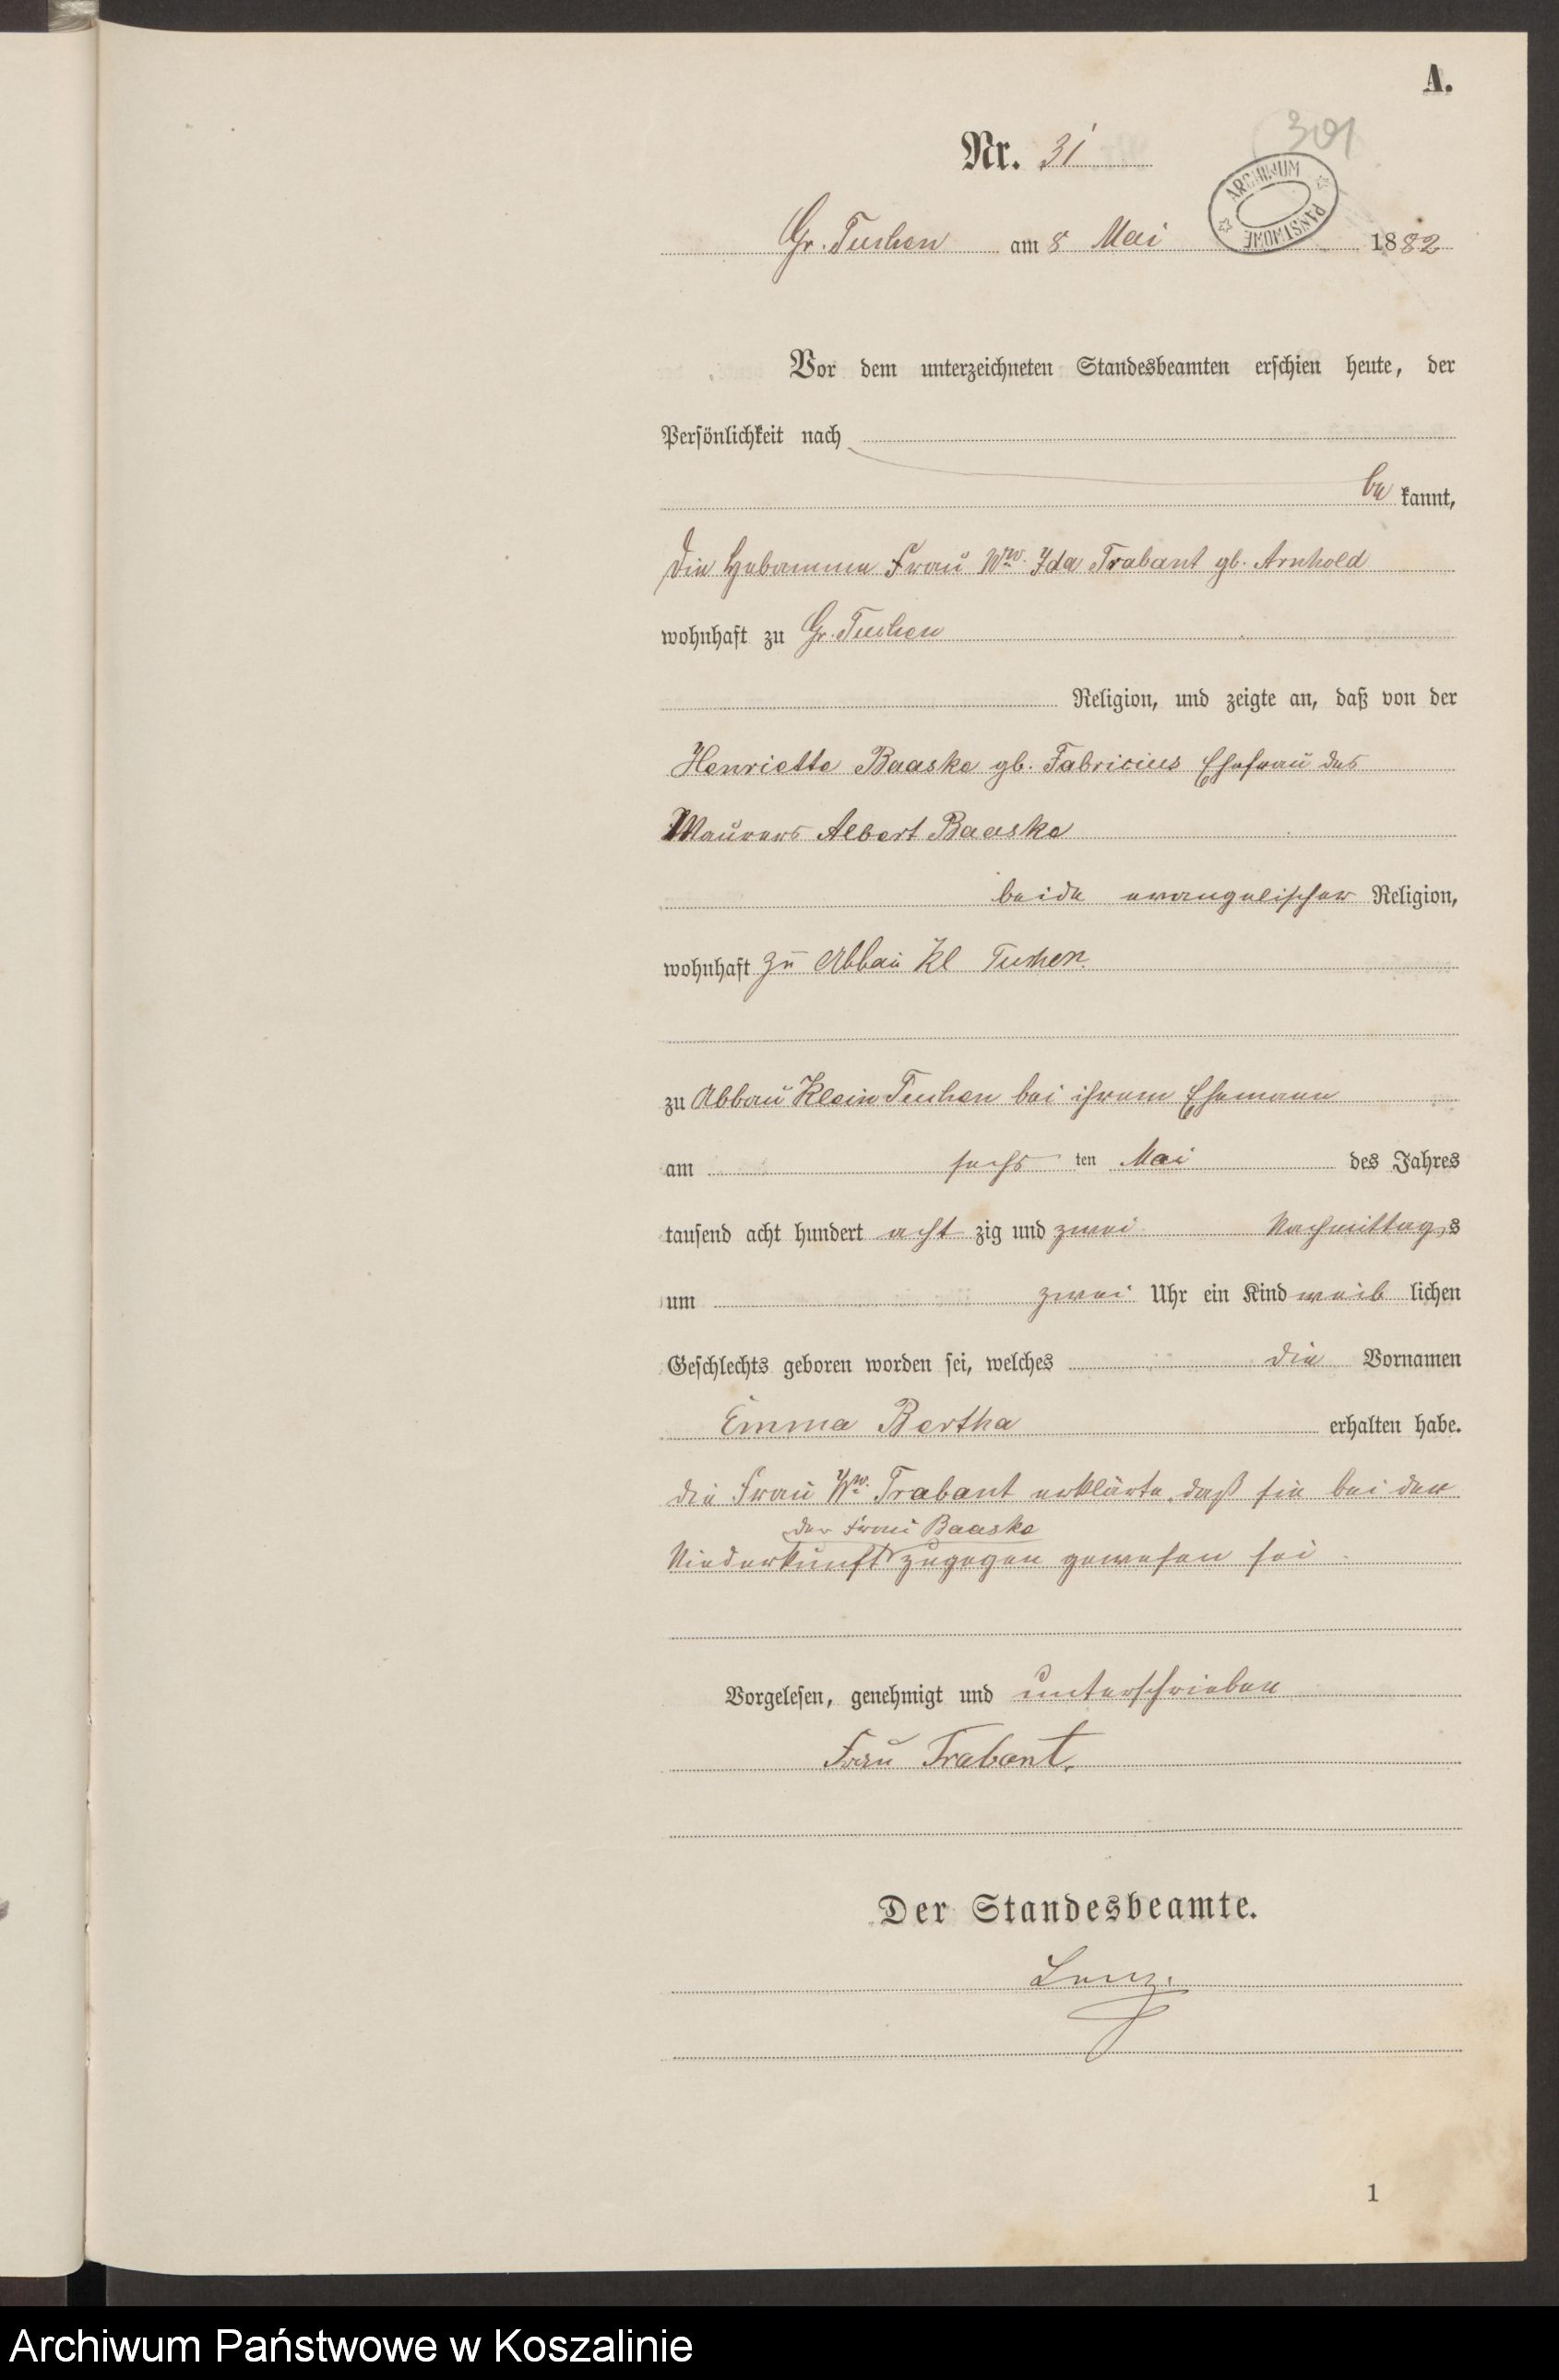 A.
301
Nr. 31
ARCHIWUM PAŃSTWOWE
Gr. Tuchen am 8 Mai 1882
Vor dem unterzeichneten Standesbeamten erschien heute, der
Persönlichkeit nach
be kannt,
die Hebamme Frau Ww. Ida Trabant gb. Arnhold
wohnhaft zu Gr. Tuchen
Religion, und zeigte an, daß von der
Henriette Baaske gb. Fabricius Ehefrau des
Maurers Albert Baaske
beide evangelischer Religion,
wohnhaft zu Abbau Kl Tuchen
zu Abbau Klein Tuchen bei ihrem Ehemann
am sechs ten Mai des Jahres
tausend acht hundert acht zig und zwei Nachmittags
um zwei Uhr ein Kind weib lichen
Geschlechts geboren worden sei, welches die Vornamen
Emma Bertha erhalten habe.
die Frau Ww. Trabant erklärte, daß sie bei der
der Frau Baaske
Niederkunft zugegen gewesen sei.
Vorgelesen, genehmigt und unterschrieben
Frau Trabant.
Der Standesbeamte.
Lenz.
1
Archiwum Państwowe w Koszalinie